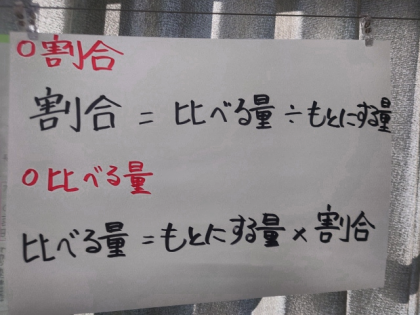 ○割合
割合 = 比べる量÷もとにする量
○比べる量
比べる量=もとにする量×割合